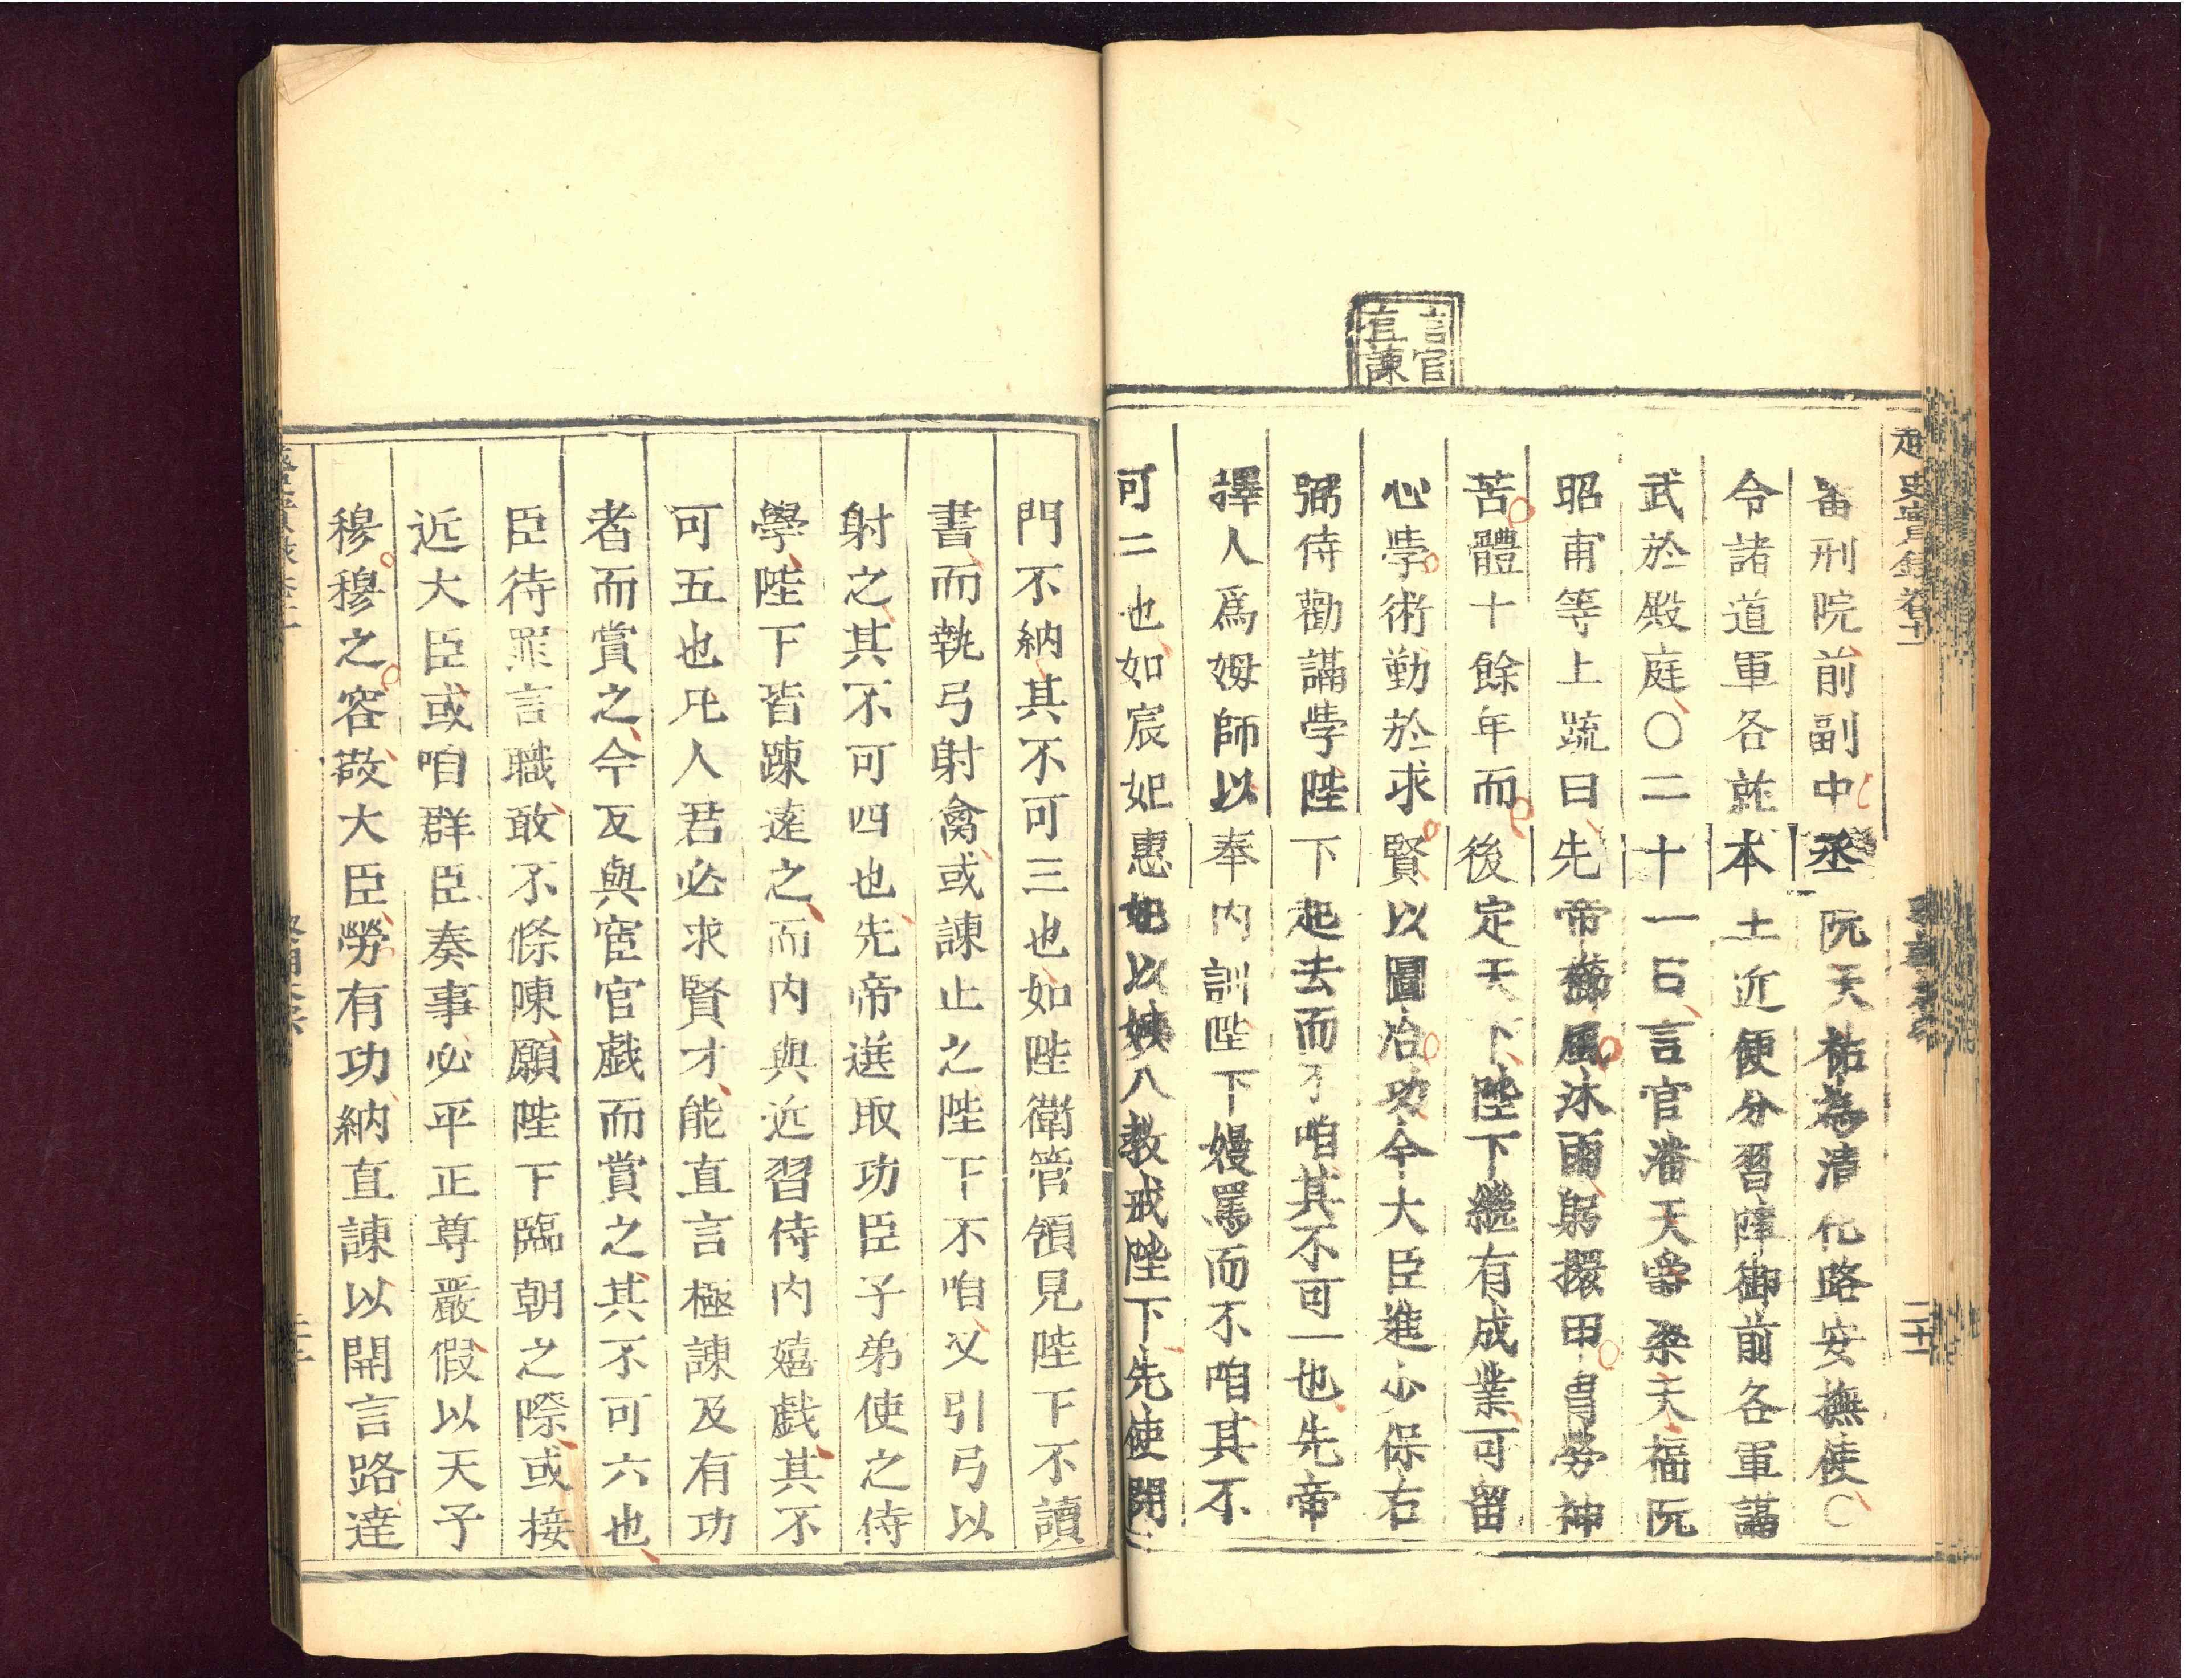 言官
直諫
審刑院前副中丞阮天祐為清化路安撫使〇
令諸道軍各就本土近便分習陣御前各軍講
武於殿庭〇二十一日言官潘天爵梁天福阮
昭甫等上疏曰先帝櫛風沐雨躬擐甲冑勞神
苦體十餘年而後定天下陛下繼有成業可留
心斈術勤於求賢以圖治功今大臣進少保右
弼侍勸講斈陛下起去而不咱其不可一也先帝
擇人爲姆師以奉內訓陛下嫚罵而不咱其不
可二也如宸妃惠妃以姨入教戒陛下先使閉
門不納其不可三也如陛衛管領見陛下不讀
書而執弓射禽或諫止之陛下不咱又引弓以
射之其不可四也先帝選取功臣子弟使之侍
學陛下皆踈遠之而內與近習侍內嬉戱其不
可五也凡人君必求賢才能直言極諫及有功
者而賞之今反與宦官戱而賞之其不可六也
臣待罪言職敢不條陳願陛下臨朝之際或接
近大臣或咱群臣奏事必平正尊嚴假以天子
穆穆之容敬大臣勞有功納直諫以開言路達